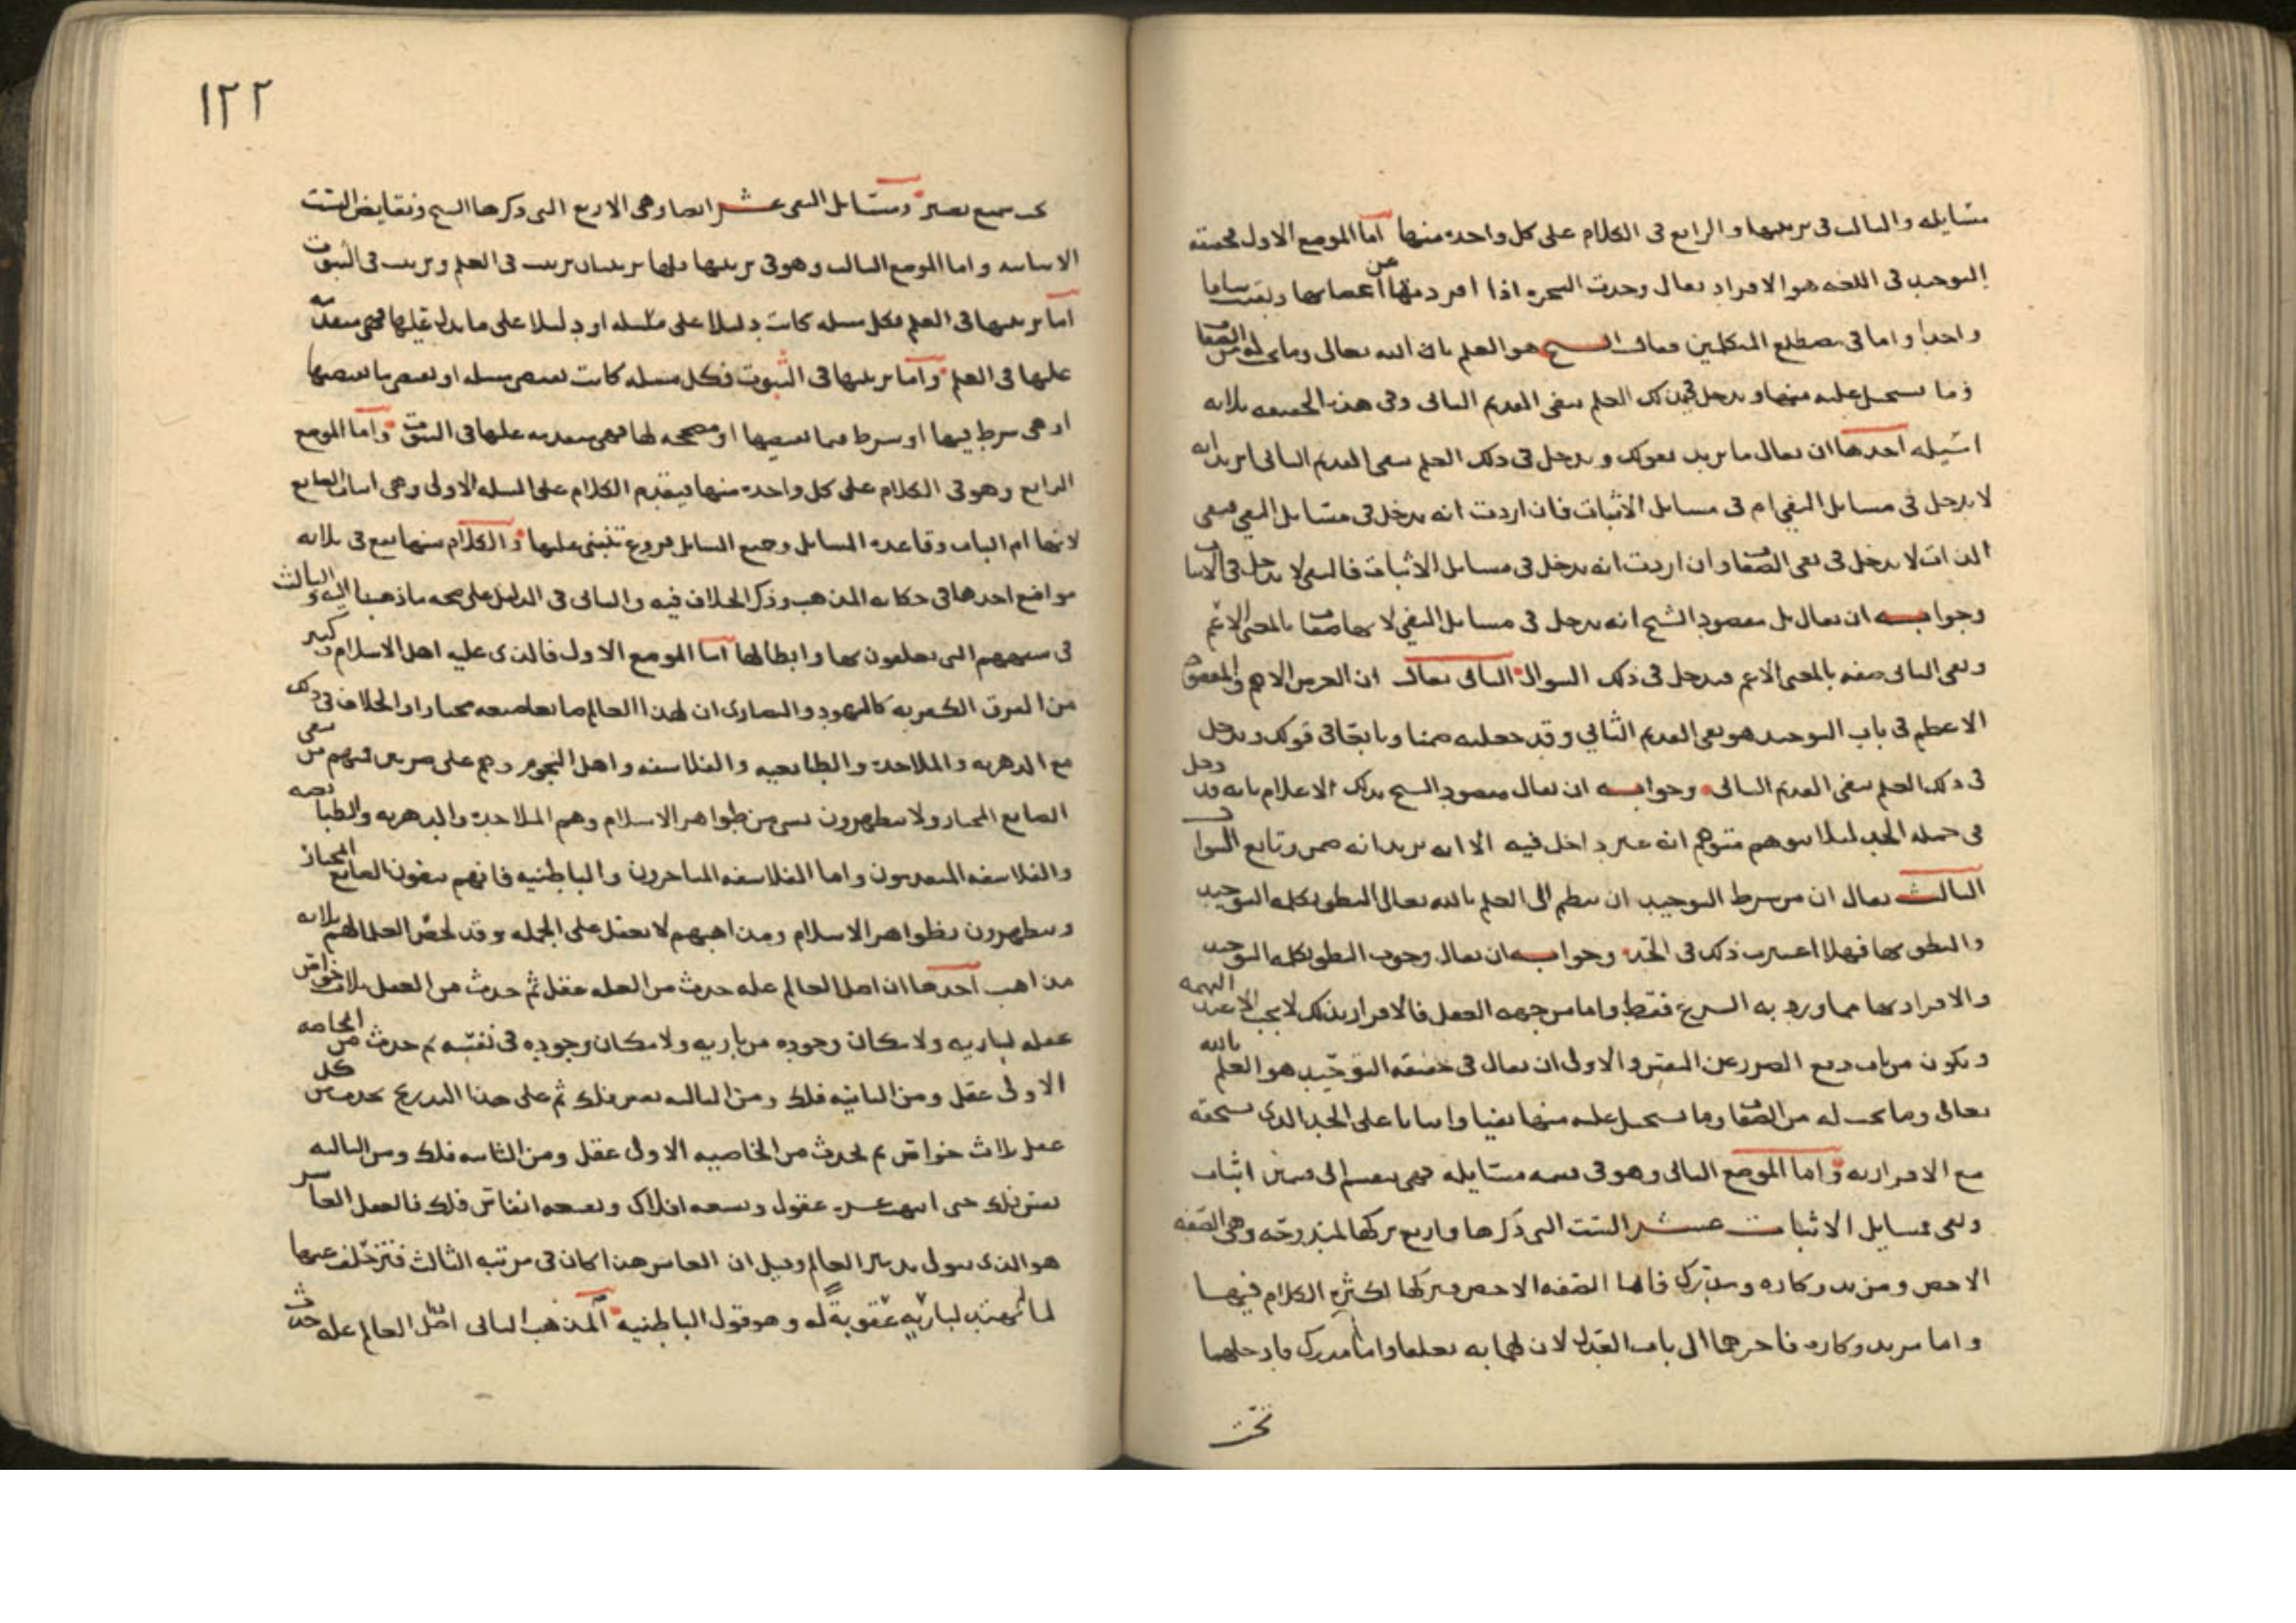 مسايله والثالث في ترتيبها والرابع في الكلام على كل واحدة منها اما الموضع الاول فحقيقة
التوحيد في اللغه هو الافراد يقال وحدت الشجرة اذا افردتها عن اغصانها وبقيت ساقا
واحدا واما في مصطلح المتكلمين فقال الشيخ هو العلم بان الله تعالى وما يجب له من الصفات
وما يستحيل عليه منها ويدخل في ذلك العلم بنفي القديم الثاني وفي هذه الحقيقه ثلاثه
اسئله احدها ان يقال ما تريد بقولك ويدخل في ذلك العلم بنفي القديم الثاني اتريد انه
لا يدخل في مسايل النفي ام في مسايل الاثبات فان اردت انه يدخل في مسايل النفي فنفي
الذات لا يدخل في نفي الصفات وان اردت انه يدخل في مسايل الاثبات فالنفي لا يدخل في الاثبات
وجوابه ان يقال بل مقصود الشيخ انه يدخل في مسايل النفي لانها صفات بالمعنى الاعم
ونفي الثاني صفه بالمعنى الاعم فيدخل في ذلك السوال الثاني يقال ان الغرض الاهم والمقصود
الاعظم في باب التوحيد هو نفي القديم الثاني وقد جعلته ضمنا وتابعا في قولك ويدخل
في ذلك العلم بنفي القديم الثاني وجوابه ان يقال مقصود الشيخ بذلك الاعلام بانه قد دخل
في جمله الحد لئلا يتوهم متوهم انه غير داخل فيه الا انه يريد انه ضمن وتابع السوال
الثالث يقال ان من شرط التوحيد ان ينظم الى العلم بالله تعالى النطق بكلمه التوحيد
والنطق بها فهلا اعتبرت ذلك في الحد وجوابه ان يقال وجوب النطق بكلمه التوحيد
والاقرار بها مما ورد به الشرع فقط واما من جهه العقل فالاقرار بذلك لا يجب الا عند التهمه
ويكون من باب دفع الضرر عن النفس والاولى ان يقال في حقيقه التوحيد هو العلم بالله
تعالى وما يجب له من الصفات وما يستحيل عليه منها نفيا واثباتا على الحد الذي يستحقه
مع الاقرار به واما الموضع الثاني وهو في قسمه مسايله فهي تنقسم الى قسمين اثبات
ونفي فمسايل الاثبات عشر الست التي ذكرها واربع تركها المدروجه وهي الصفه
الاخص ومريد وكاره ومدرك فاما الصفه الاخص فتركها لكثره الكلام فيها
واما مريد وكاره فاخرهما الى باب العدل لان لهما به تعلقا واما مدرك فادخلها
تحت
١٢٢
تحت سميع بصير ومسايل النفي عشر ايضا وهي الاربع التي ذكرها الشيخ ونقايض الست
الاثباتيه واما الموضع الثالث وهو في ترتيبها فلها ترتيبان ترتيب في العلم وترتيب في الثبوت
اما ترتيبها في العلم فكل مسله كانت دليلا على مسله او دليلا على ما يدل عليها فهي متقدمه
عليها في العلم واما ترتيبها في الثبوت فكل مسله كانت تقتضي مسله او تقتضي ما يقتضيها
او هي شرط فيها او شرط فيما يقتضيها او مصححه لها فهي متقدمه عليها في الثبوت واما الموضع
الرابع وهو في الكلام على كل واحدة منها فيتقدم الكلام على المسله الاولى وهي اثبات الصانع
لانها ام الباب وقاعده المسايل وجميع المسايل فروع تنبني عليها والكلام منها يقع في ثلاثه
مواضع احدها في حكايه المذهب وذكر الخلاف فيه والثاني في الدليل على صحه ما ذهبنا اليه والثالث
في شبههم التي يتعلقون بها وابطالها اما الموضع الاول فالذي عليه اهل الاسلام وكثير
من الفرق الكفريه كاليهود والنصارى ان لهذا العالم صانعا صنعه مختارا والخلاف في ذلك
مع الدهريه والملاحده والطبايعيه والفلاسفه واهل النجوم وهم على ضربين فمنهم من ينفي
الصانع المختار ولا يتظهرون بشي من ظواهر الاسلام وهم الملاحده والدهريه والطبايعيه
والفلاسفه المتقدمون واما الفلاسفه المتاخرون والباطنيه فانهم ينفون الصانع المختار
ويتظهرون بظواهر الاسلام ومذاهبهم لا تعقل على الجمله وقد لخص العلما لهم ثلاثه
مذاهب احدها ان اصل العالم عله حدث من العله عقل ثم حدث من العقل ثلاث خواص
عقله لباريه ولامكان وجوده من باريه ولامكان وجوده في نفسه ثم حدث من الخاصه
الاولى عقل ومن الثانيه فلك ومن الثالثه نفس فلك ثم على هذا التدريج يحدث من كل
عقل ثلاث خواص ثم يحدث من الخاصيه الاولى عقل ومن الثانيه فلك ومن الثالثه
نفس فلك حتى انتهت عشره عقول وتسعه افلاك وتسعه انفاس فلك فالعقل العاشر
هو الذي يتولى تدبير العالم وقيل ان العاشر هذا كان في مرتبه الثالث فتزحلف عنها
لما لم يهتد لباريه عقوبة له وهو قول الباطنيه المذهب الثاني اصل العالم عله حدث